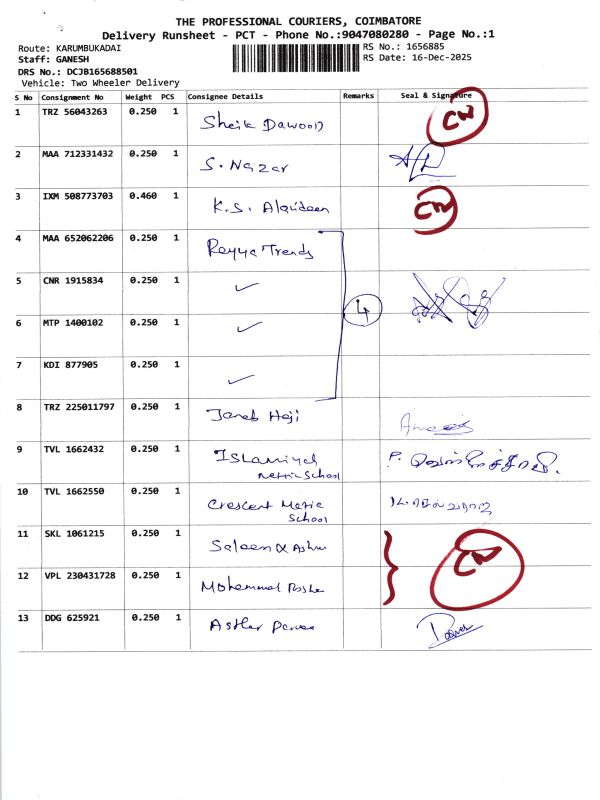 THE PROFESSIONAL COURIERS, COIMBATORE
Delivery Runsheet - PCT - Phone No.:9047080280 - Page No.:1
Route: KARUMBUKADAI
RS No.: 1656885
Staff: GANESH
RS Date: 16-Dec-2025
DRS No.: DCJB165688501
Vehicle: Two Wheeler Delivery
S No Consignment No Weight PCS Consignee Details Remarks Seal & Signature
1 TRZ 56043263 0.250 1 Sheik Dawood CN
2 MAA 712331432 0.250 1 S. Nazar
3 IXM 508773703 0.460 1 K.S. CN
4 MAA 652062206 0.250 1 Trends
5 CNR 1915834 0.250 1 ✓ 4
6 MTP 1400102 0.250 1 ✓
7 KDI 877905 0.250 1 ✓
8 TRZ 225011797 0.250 1 Janab Haji
9 TVL 1662432 0.250 1 Islamiyah
Matric School
10 TVL 1662550 0.250 1 Crescent Matric
School
11 SKL 1061215 0.250 1 CN
12 VPL 230431728 0.250 1 Mohammad
13 DDG 625921 0.250 1